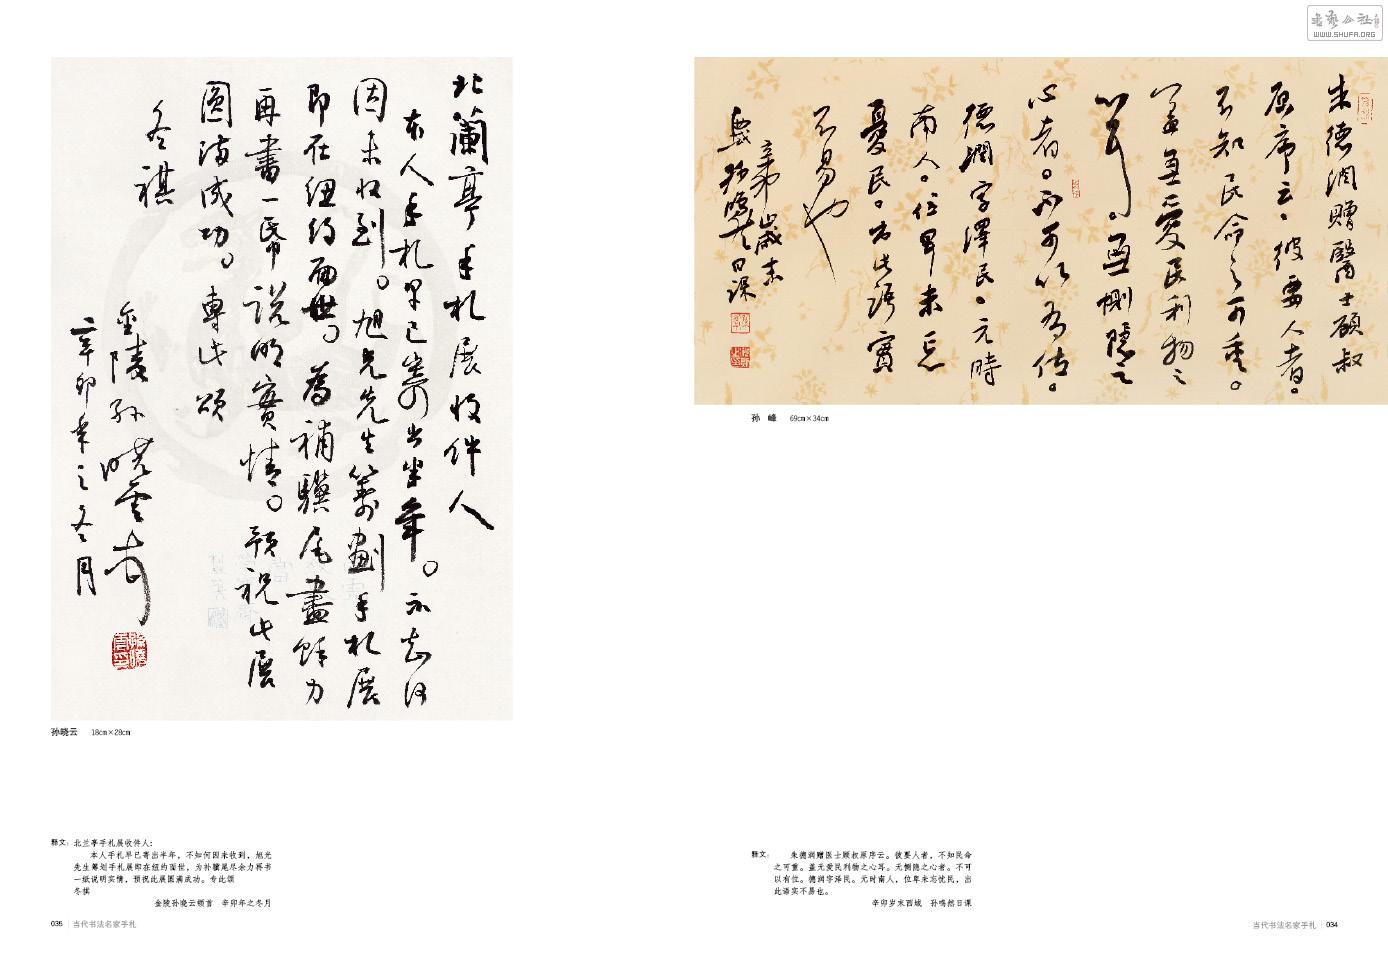 书艺公社
WWW.SHUFA.ORG
北蘭亭手札展收件人
本人手札早已寄出半年。不知何
因未收到。旭光先生筹劃手札展
即在纽约面世。為補驥尾盡餘力
再書一帋說明實情。預祝此展
圓滿成功。專此頌
冬祺
金陵孙晓雲頓首
辛卯年之冬月
孙晓云 18cm×28cm
释文：北兰亭手札展收件人：
本人手札早已寄出半年，不知何因未收到，旭光
先生筹划手札展即在纽约面世，为补骥尾尽余力再书
一纸说明实情，预祝此展圆满成功。专此颂
冬祺
金陵孙晓云顿首 辛卯年之冬月
035 当代书法名家手札
朱德潤贈醫士顾叔
原序云。彼要人者。
不知民命之可重。
盖無愛民利物之
心耳。無惻隱之
心者。不可以为位。
德潤字澤民。元時
南人。位卑未忘
憂民。出此語實
不易也
辛卯歲末
孙 峰 69cm×34cm
释文：朱德润赠医士顾叔原序云。彼要人者，不知民命
之可重。盖无爱民利物之心耳。无恻隐之心者。不可
以有位。德润字泽民。元时南人，位卑未忘忧民，出
此语实不易也。
辛卯岁末西域 孙鸣然日课
当代书法名家手札 034